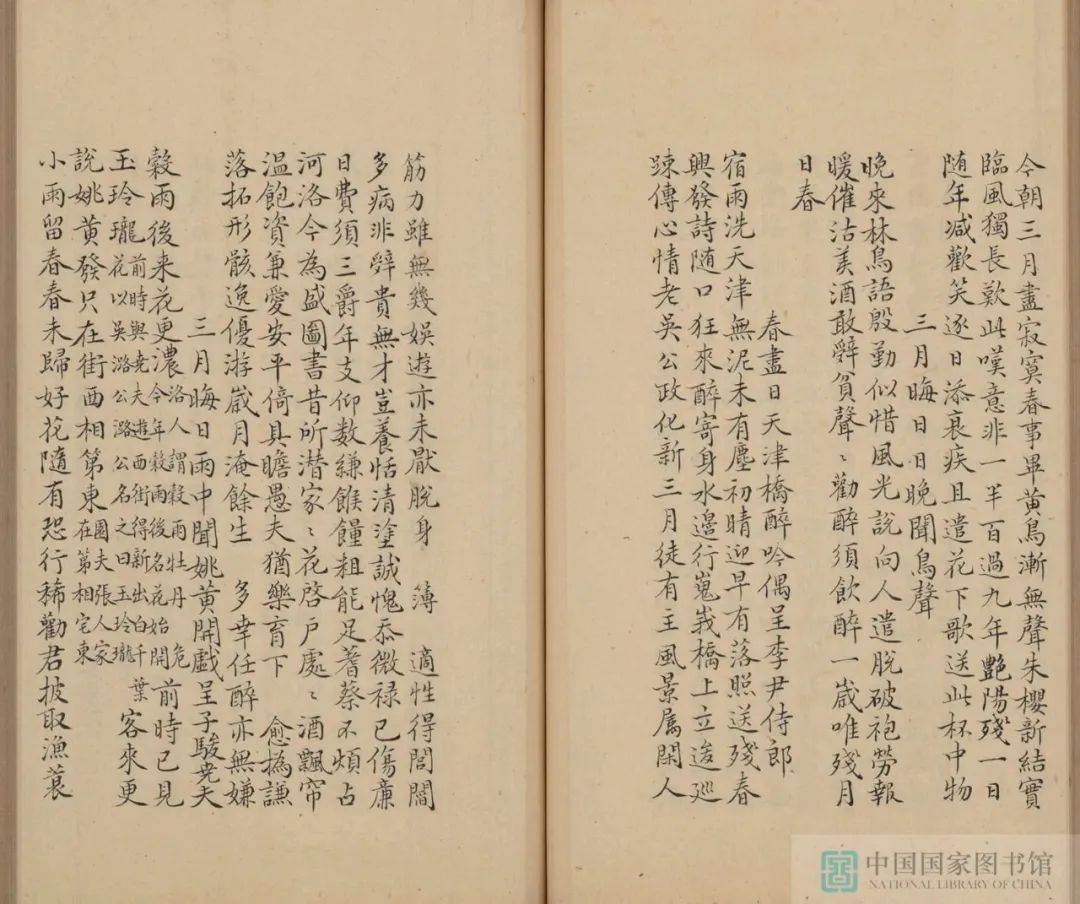 今朝三月盡寂寞春事畢黃鳥漸無聲朱櫻新結實
臨風獨長歎此嘆意非一半百過九年艷陽殘一日
随年減歡笑逐日添衰疾且遣花下歌送此杯中物
三月晦日日晚聞鳥聲
晚來林鳥語殷勤似惜風光說向人遣脫破袍勞報
暖催沽美酒敢辤貧聲〻勸醉須飲醉一嵗唯殘月
日春
春盡日天津橋醉吟偶呈李尹侍郎
宿雨洗天津無泥未有塵初晴迎早有落照送殘春
興發詩随口狂來醉寄身水邉行嵬峩橋上立逡廵
踈傳心情老吳公政化新三月徒有主風景属閑人
筋力雖無幾娱遊亦未猒脫身簿適性得閭閻
多病非辤貴無才豈養恬清塗誠愧忝微禄已傷廉
日費須三爵年支仰数縑餱饘粗能足蓍蔡不煩占
河洛今為盛圖書昔所潜家〻花啓户處〻酒飄帘
温飽資兼愛安平倚具瞻愚夫猶樂育下愈撝謙
落拓形骸逸優游嵗月淹餘生多幸任醉亦無嫌
三月晦日雨中聞姚黃開戯呈子駿尭夫
榖雨後来花更濃洛人謂榖雨牡丹危今年榖雨後名花始開前時已見
玉玲瓏前時與尭夫遊西街得新出白千葉花以吳潞公潞公名之曰玉玲瓏客來更
說姚黃發只在街西相第東在園夫張人家第相宅東
小雨留春春未歸好花隨有恐行稀勸君披取漁蓑
中国国家图书馆
NATIONAL LIBRARY OF CHINA